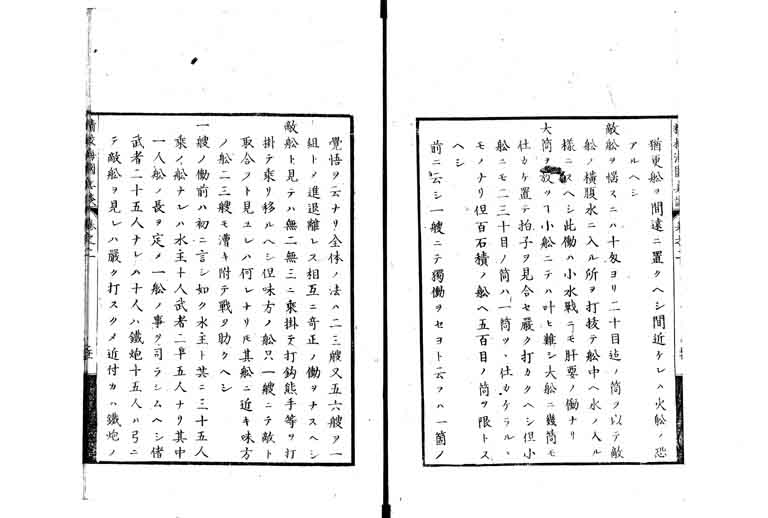 猶更舩ヲ間遠ニ置クヘシ間近ケレハ火舩ノ恐
アルヘシ
敵舩ヲ悩スニハ十匁ヨリ二十目迄ノ筒ヲ以テ敵
舩ノ横腹水ニ入ル所ヲ打技テ舩中ヘ水ノ入ル
様ニスヘシ此働ハ小水戦ニモ肝要ノ働ナリ
大筒ヲ放ヿ小舩ニテハ叶ヒ難シ大舩ニ幾筒モ
仕カケ置テ拍子ヲ見合セ嚴ク打カクヘシ但小
舩ニモ二三十目ノ筒ハ一筒ツヽ仕カケラルヽ
モノナリ但百石積ノ舩ヘ五百目ノ筒ヲ限トス
ヘシ
前ニ云シ一艘ニテ獨働ヲセヨト云フハ一箇ノ
覺悟ヲ云ナリ全体ノ法ハ二三艘又五六艘ヲ一
組トノ進退離レス相互ニ奇正ノ働ヲナスヘシ
敵舩ト見テハ無二無三ニ乗掛テ打鈎熊手等ヲ打
掛テ乗リ移ルヘシ但味方ノ舩只一艘ニテ敵ト
取合フト見ユレハ何レナリモ其舩ニ近キ味方
ノ舩二三艘モ漕キ附テ戰ヲ助クヘシ
一艘ノ働前ハ初ニ言シ如ク水主ト共ニ三十五人
乗イ舩ナレハ水主十人武者二十五人ナリ其中
一人舩ノ長ヲ定メ一舩ノ事ヲ司ラシムヘシ偖
武者二十五人ナレハ十人ハ鐵炮十五人ハ弓ニ
テ敵舩ヲ見レハ嚴ク打スクメ近付カハ鐵炮ノ
精校海國兵談 卷之二